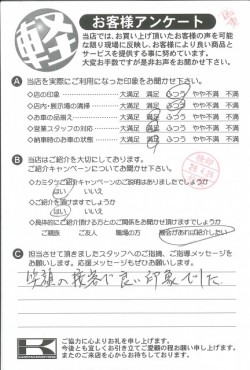 軽
お客様アンケート
当店では、お買い上げ頂いたお客様の声を可能
な限り現場に反映し、お客様により良い商品と
サービスを提供する事に努めています。
大変お手数ですが是非お声をお聞かせ下さい。
A 当店を実際にご利用になった印象をお聞かせ下さい。
◇店の印象 大満足 満足 ふつう やや不満 不満
◇店内・展示場の清掃 大満足 満足 ふつう やや不満 不満
◇お車の品揃え 大満足 満足 ふつう やや不満 不満
◇営業スタッフの対応 大満足 満足 ふつう やや不満 不満
◇納車時のお車の状態 大満足 満足 ふつう やや不満 不満
B 当店はご紹介を大切にしております。
ご紹介キャンペーンについてお聞かせ下さい。
◇カミタケご紹介キャンペーンのご説明はありましたでしょうか
はい いいえ
◇ご紹介を頂けますでしょうか
はい いいえ
◇具体的にご紹介頂ける方とのご関係をお聞かせ頂けますでしょうか
ご親族 ご友人 職場の方 機会があれば紹介したい
C 担当させて頂きましたスタッフへのご指摘、ご指導メッセージを
お願いします。応援メッセージもぜひお願いします。
笑顔の接客で良い印象でした。
K
ご協力に心よりお礼を申し上げます。
今後とも宜しくお引き立てご愛顧の程お願い申し上げます。
またのご来店を心からお待ちしております。